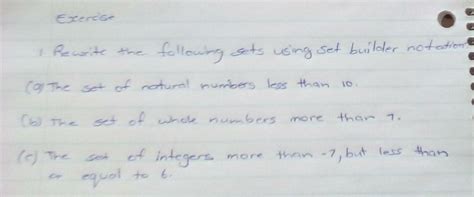 Exercise
1. Rewrite the following sets using set builder notation
(a) The set of natural numbers less than 10.
(b) The set of whole numbers more than 7.
(c) The set of integers more than -7, but less than
or equal to 6.